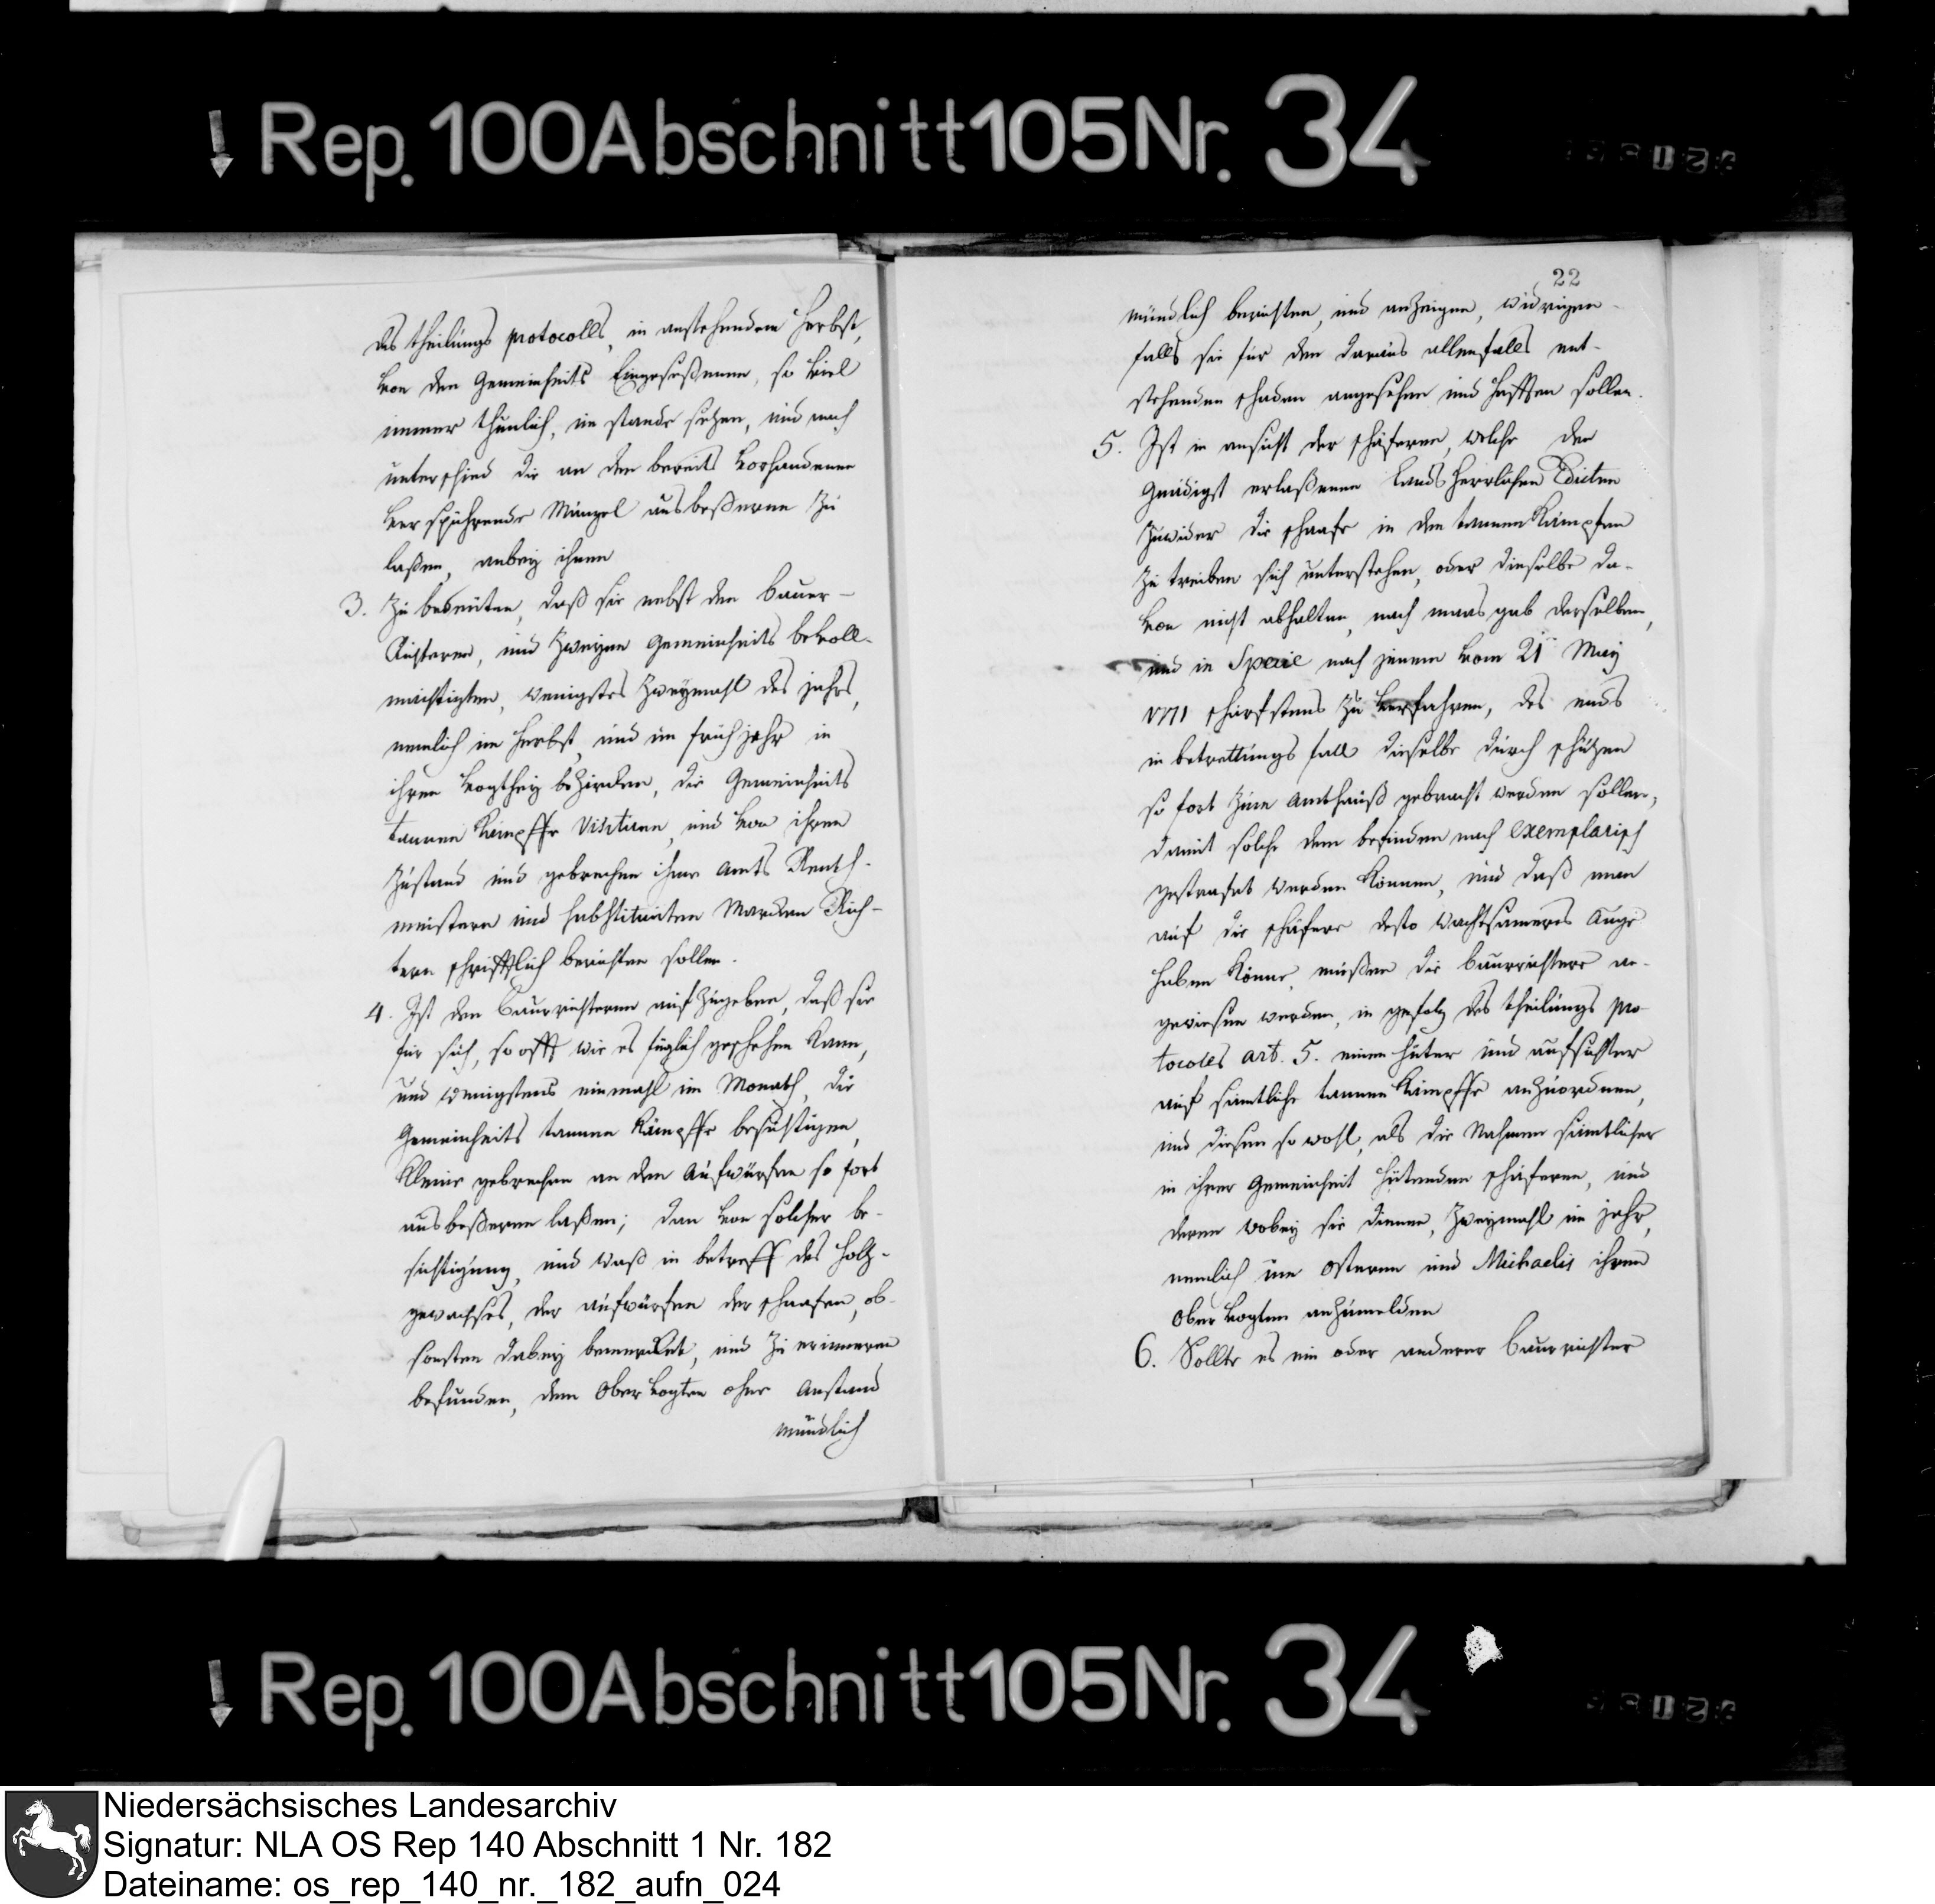 Rep. 100 Abschnitt 105 Nr. 34
des theilungs protocolls, in anstehendem Herbst,
von den Gemeinheits Eingeseßenen, so viel
immer thunlich, in stande setzen, und nach
unterschied die an den bereits vorhandenen
verspührende Mängel ausbeßeren zu
laßen, anbey ihnen
3. Zu bedeuten, daß sie nebst den Bauer-
Richteren, und zweyen Gemeinheits bevoll-
mächtigten, wenigstes zweymahl des jahrs,
nemlich im Herbst, und im frühjahr in
ihren Vogthey bezircken, die Gemeinheits
tannen Kämpffe visitiren, und von ihren
Zustand und gebrechen ihren Amts Rent-
meistern und substituirten Marcken Rich-
tern schrifftlich berichten sollen.
4. Ist den Baurrichteren auf zugeben, daß sie
für sich, so offt wie es füglich geschehen kann,
und wenigstens einmahl im Monath, die
Gemeinheits tannen Kämpffe besichtigen,
Kleine gebrechen an den Aufwürfen so fort
ausbeßeren laßen; dan von solcher be-
sichtigung, und waß in betreff des Holtz-
gewachses, der aufwürfen der schaafen, ob
sonsten dabey bemercket, und zu erinneren
befunden, dem Ober Vogten ohne Anstand
mündlich
22
mündlich berichten, und anzeigen, widrigen-
falls sie für den daraus allenfalls ent-
stehenden schaden angesehen und hafften sollen.
5. Ist in ansicht der schäferen, welche den
Gnädigst erlaßenen Landsherrlichen Edicten
zuwider die schaafe in den tannen Kämpfen
zu treiben sich unterstehen, oder dieselbe da-
von nicht abhalten, nach maasgab derselben,
und in Specie nach jenem vom 21 May
1771 schärfstens zu verfahren, des ends
in betrettungs fall dieselbe durch schützen
so fort zum Amthauß gebracht werden sollen,
damit solche dem befinden nach exemplarisch
gestrafet werden können, und daß man
auf die schäfere desto wachtsameres Auge
haben könne, müßen die Baurrichtere an-
gewiesen werden, in gefolg des theilungs pro-
tocoles art. 5. einen Hüter und aufsichter
auf sämtliche tannen Kämpffe anzuordnen,
und diesen so wohl, als die Nahmen sämtlicher
in ihrer Gemeinheit hütenden schäferen, und
deren wobey sie dienen, zweymahl im jahr,
nemlich um Osteren und Michaelis ihren
Ober Vogten anzumelden
6. Sollte es ein oder anderer Baurrichter
Rep. 100 Abschnitt 105 Nr. 34
Niedersächsisches Landesarchiv
Signatur: NLA OS Rep 140 Abschnitt 1 Nr. 182
Dateiname: os_rep_140_nr._182_aufn_024